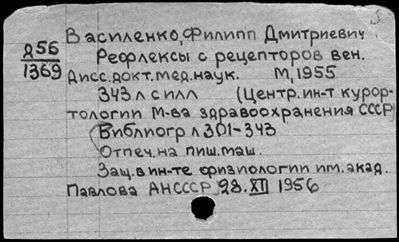 Василенко, Филипп Дмитриевич
Д56
1369
Рефлексы с рецепторов вен.
Дисс. докт. мед. наук. М, 1955
343 л с илл (Центр. ин-т курор-
тологии М-ва здравоохранения СССР)
Библиогр л 301-343
Отпеч. на пиш. маш.
Защ. в ин-те физиологии им. акад.
Павлова АНСССР 28. XII 1956